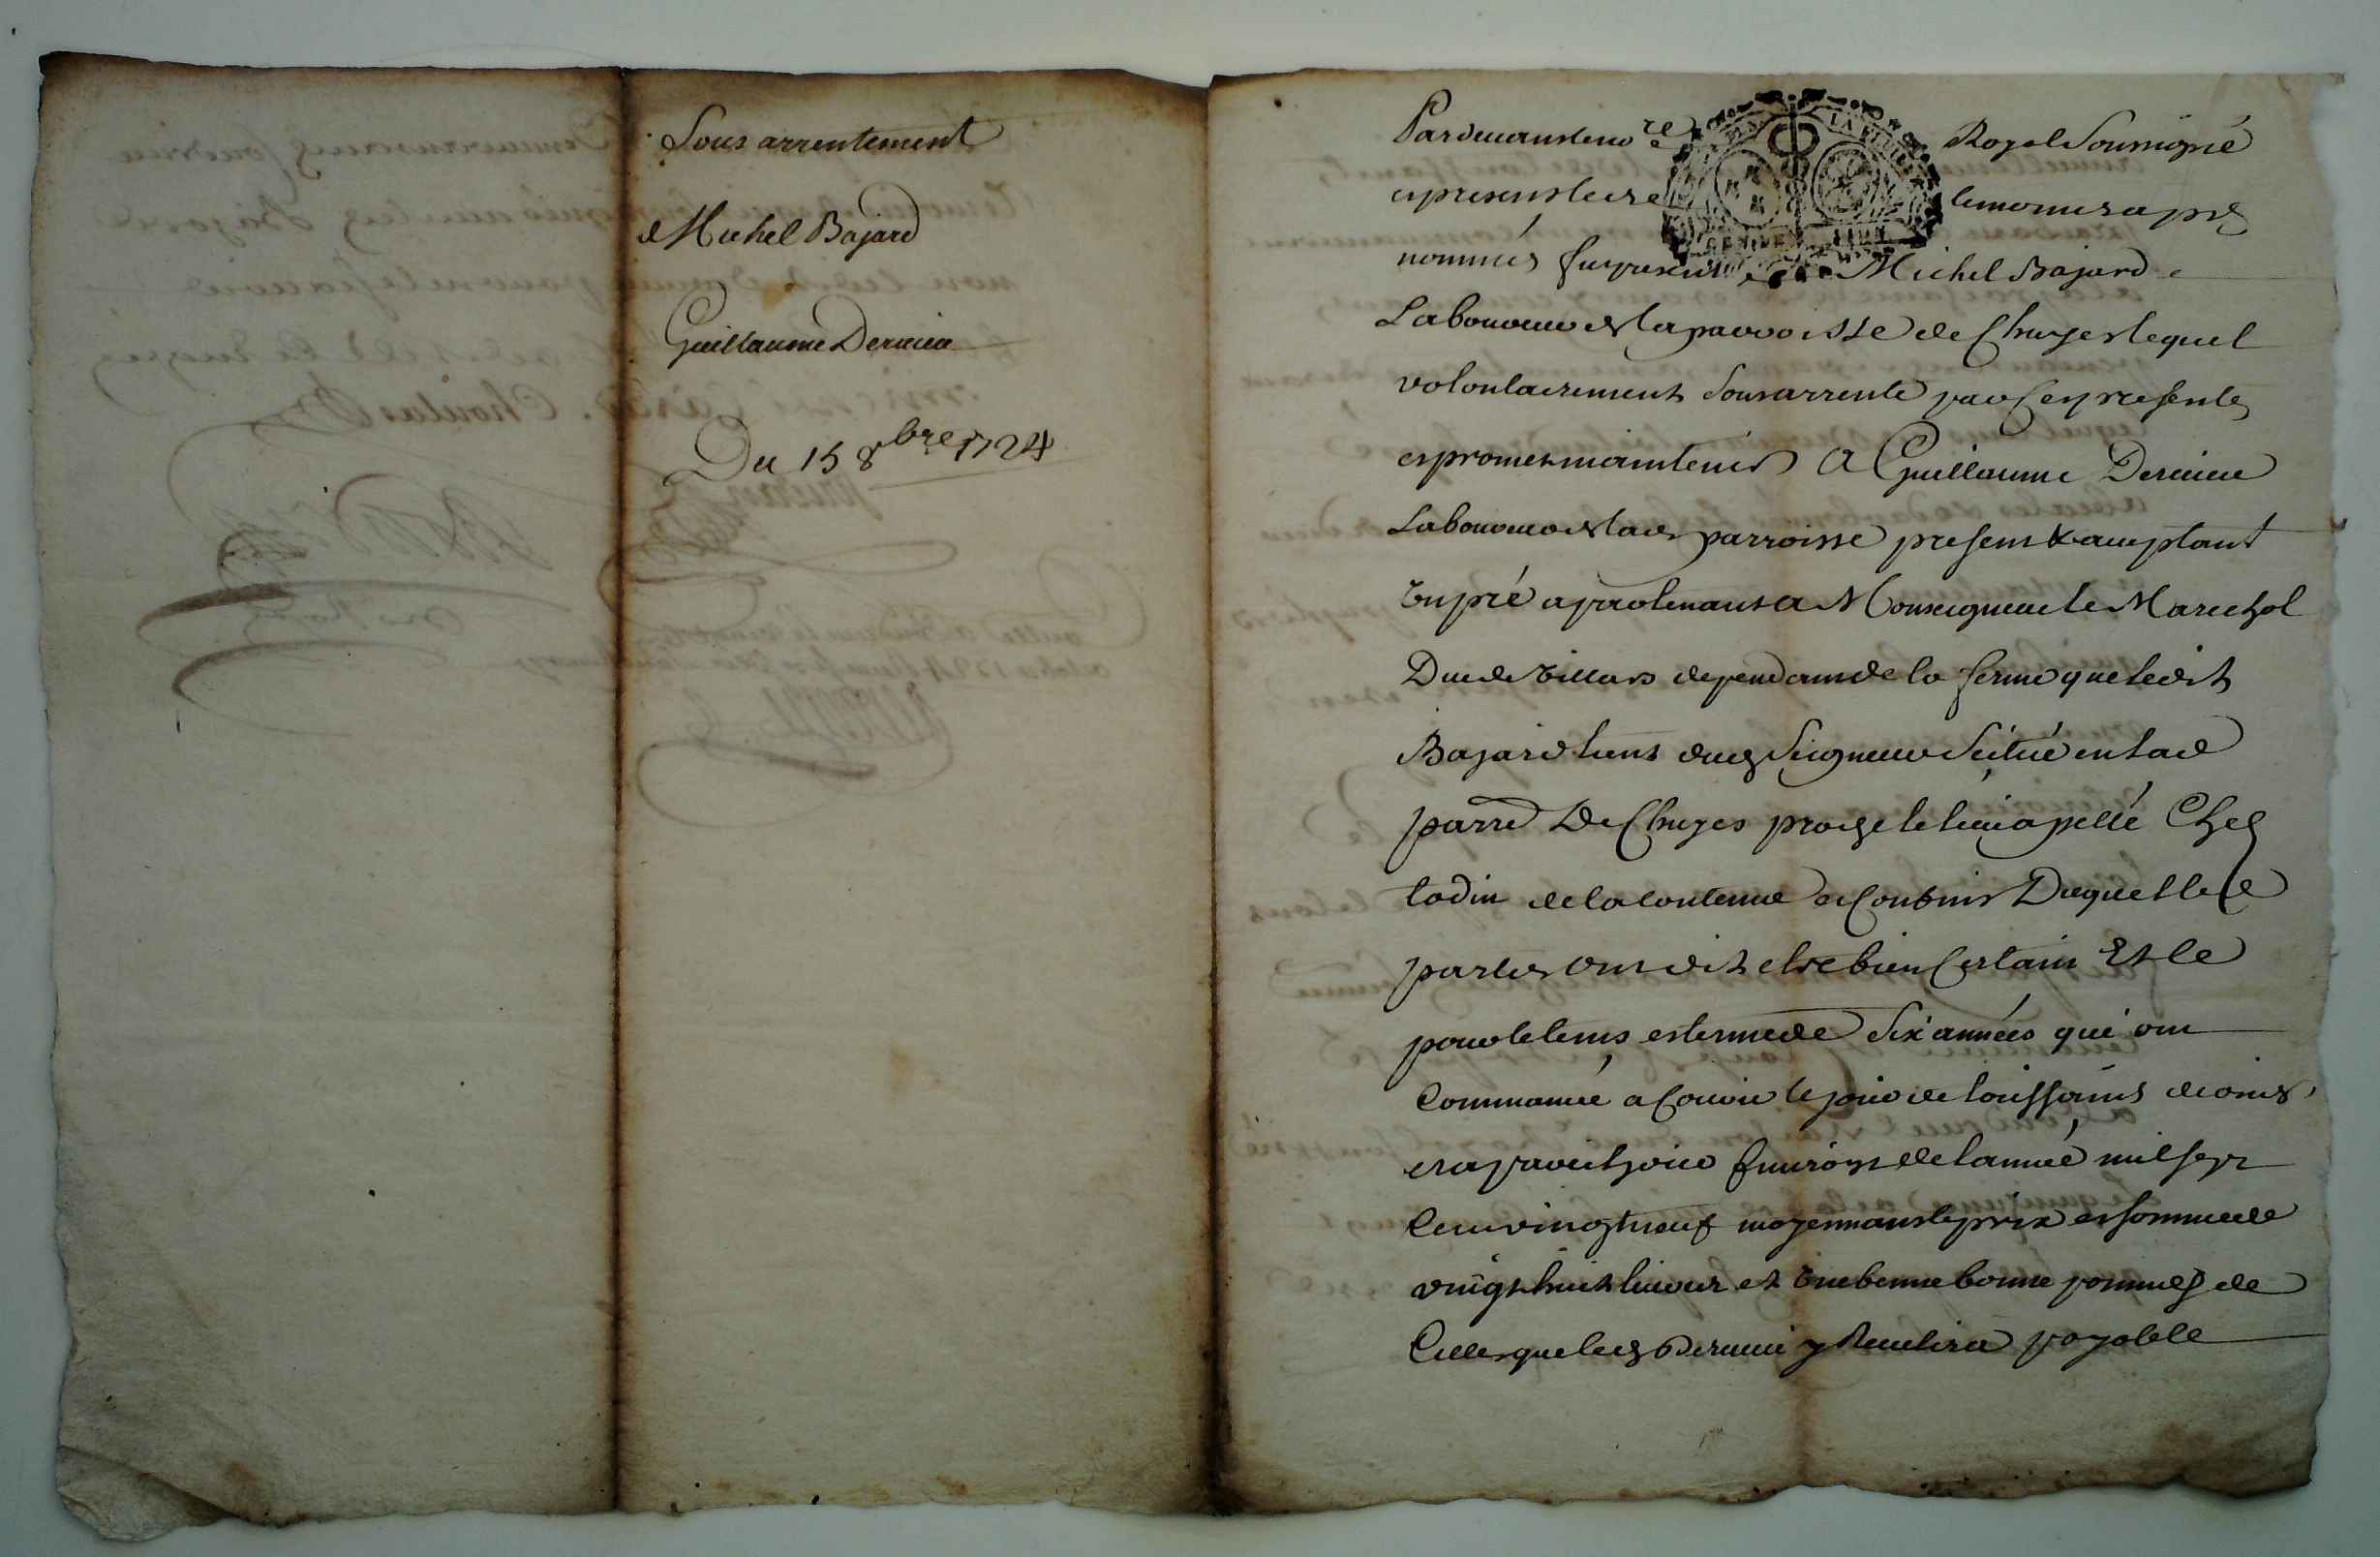 Sous arrentement
Michel Bajard
Guillaume Deruieu
Du 15 8bre 1724
Pardevant le nore Royal Soussigné
et presents les temoins apres
nommés fut present Michel Bajard
Laboureur de la parroisse de Chuyes lequel
volontairement sousarrente par ces presentes
et promet maintenir A Guillaume
Laboureur de lad parroisse present & acceptant
Un pré apartenant a Monseigneur le Marechal
Duc de Villars dependant de la ferme que ledit
Bajard tient dud Seigneur Scitué en lad
parre De Chuyes proche le lieu apellé Chez
todin de la contenue et confins Duquel les
parties ont dit etre bien Certain Et ce
pour le tems et terme de Six années qui ont
Commancé a Courir le jour de toussaints
de lannée mil sept
Cent vingt neuf moyennant le prix et somme de
vingt huit livres et Une benne bonne pommes de
Celles que led y payable